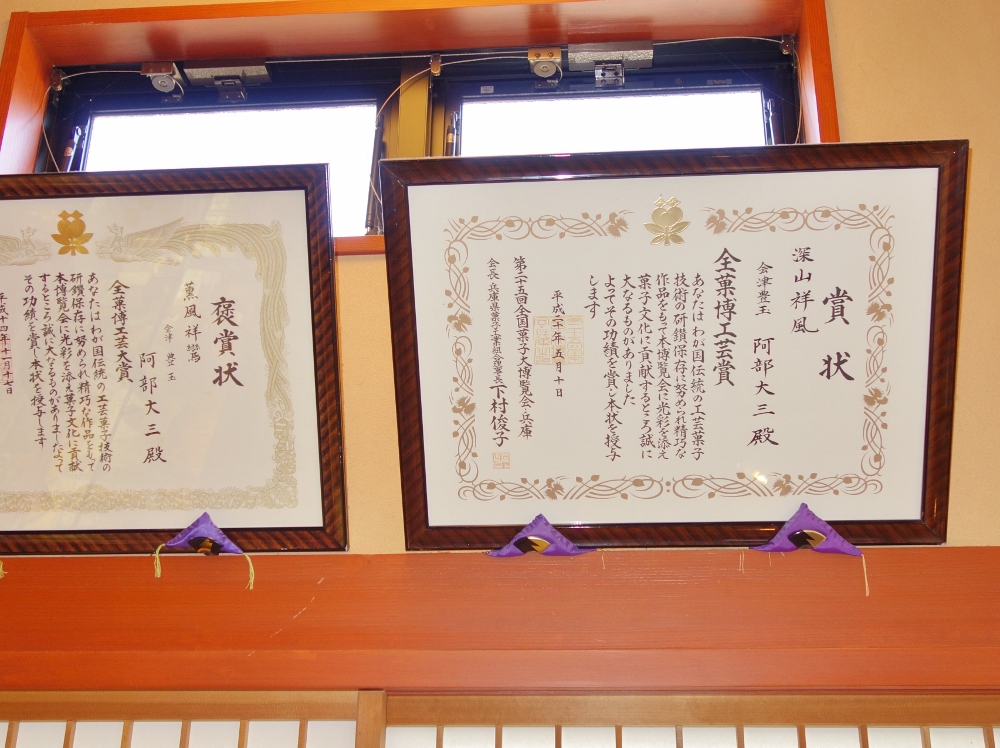 賞状
深山祥風
会津豊玉 阿部大三殿
全菓博工芸賞
あなたは わが国伝統の工芸菓子
技術の研鑚保存に努められ精巧な
作品をもって本博覧会に光彩を添え
菓子文化に貢献するところ誠に
大なるものがありました
よってその功績を賞し本状を授与
します
平成二十年五月十日
第二十五回全国菓子大博覧会・兵庫
会長 兵庫県菓子工業組合理事長 下村俊子
褒賞状
薫風祥鸞
会津 豊玉
阿部大三殿
全菓博工芸大賞
あなたは わが国伝統の工芸菓子技術の
研鑚保存に努められ 精巧な作品をもって
本博覧会に光彩を添え菓子文化に貢献
するところ誠に大なるものがありましたよって
その功績を賞し本状を授与します
平成十四年十一月十七日